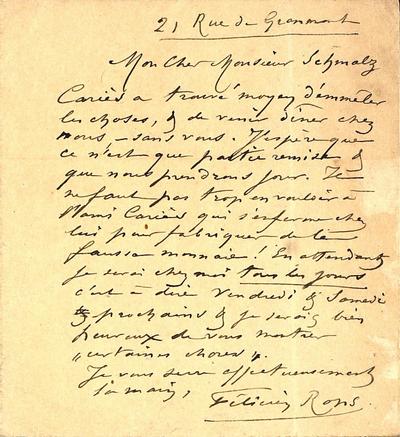 21 Rue de Gramont
Mon Cher Monsieur Schmalz
Cariès a trouvé moyen d'emmêler
les choses, & de venir dîner chez
nous – sans vous. J'espère que
ce n'est que partie remise &
que nous prendrons jour. Il
ne faut pas trop en vouloir à
l'ami Cariès qui s'enferme chez
lui pour fabriquer de la
fausse monnaie! En attendant
je serai chez moi tous les jours
c'est à dire Vendredi & Samedi
prochains & je serais bien
heureux de vous montrer
„certaines choses".
Je vous serre affectueusement
la main,
Félicien Rops.